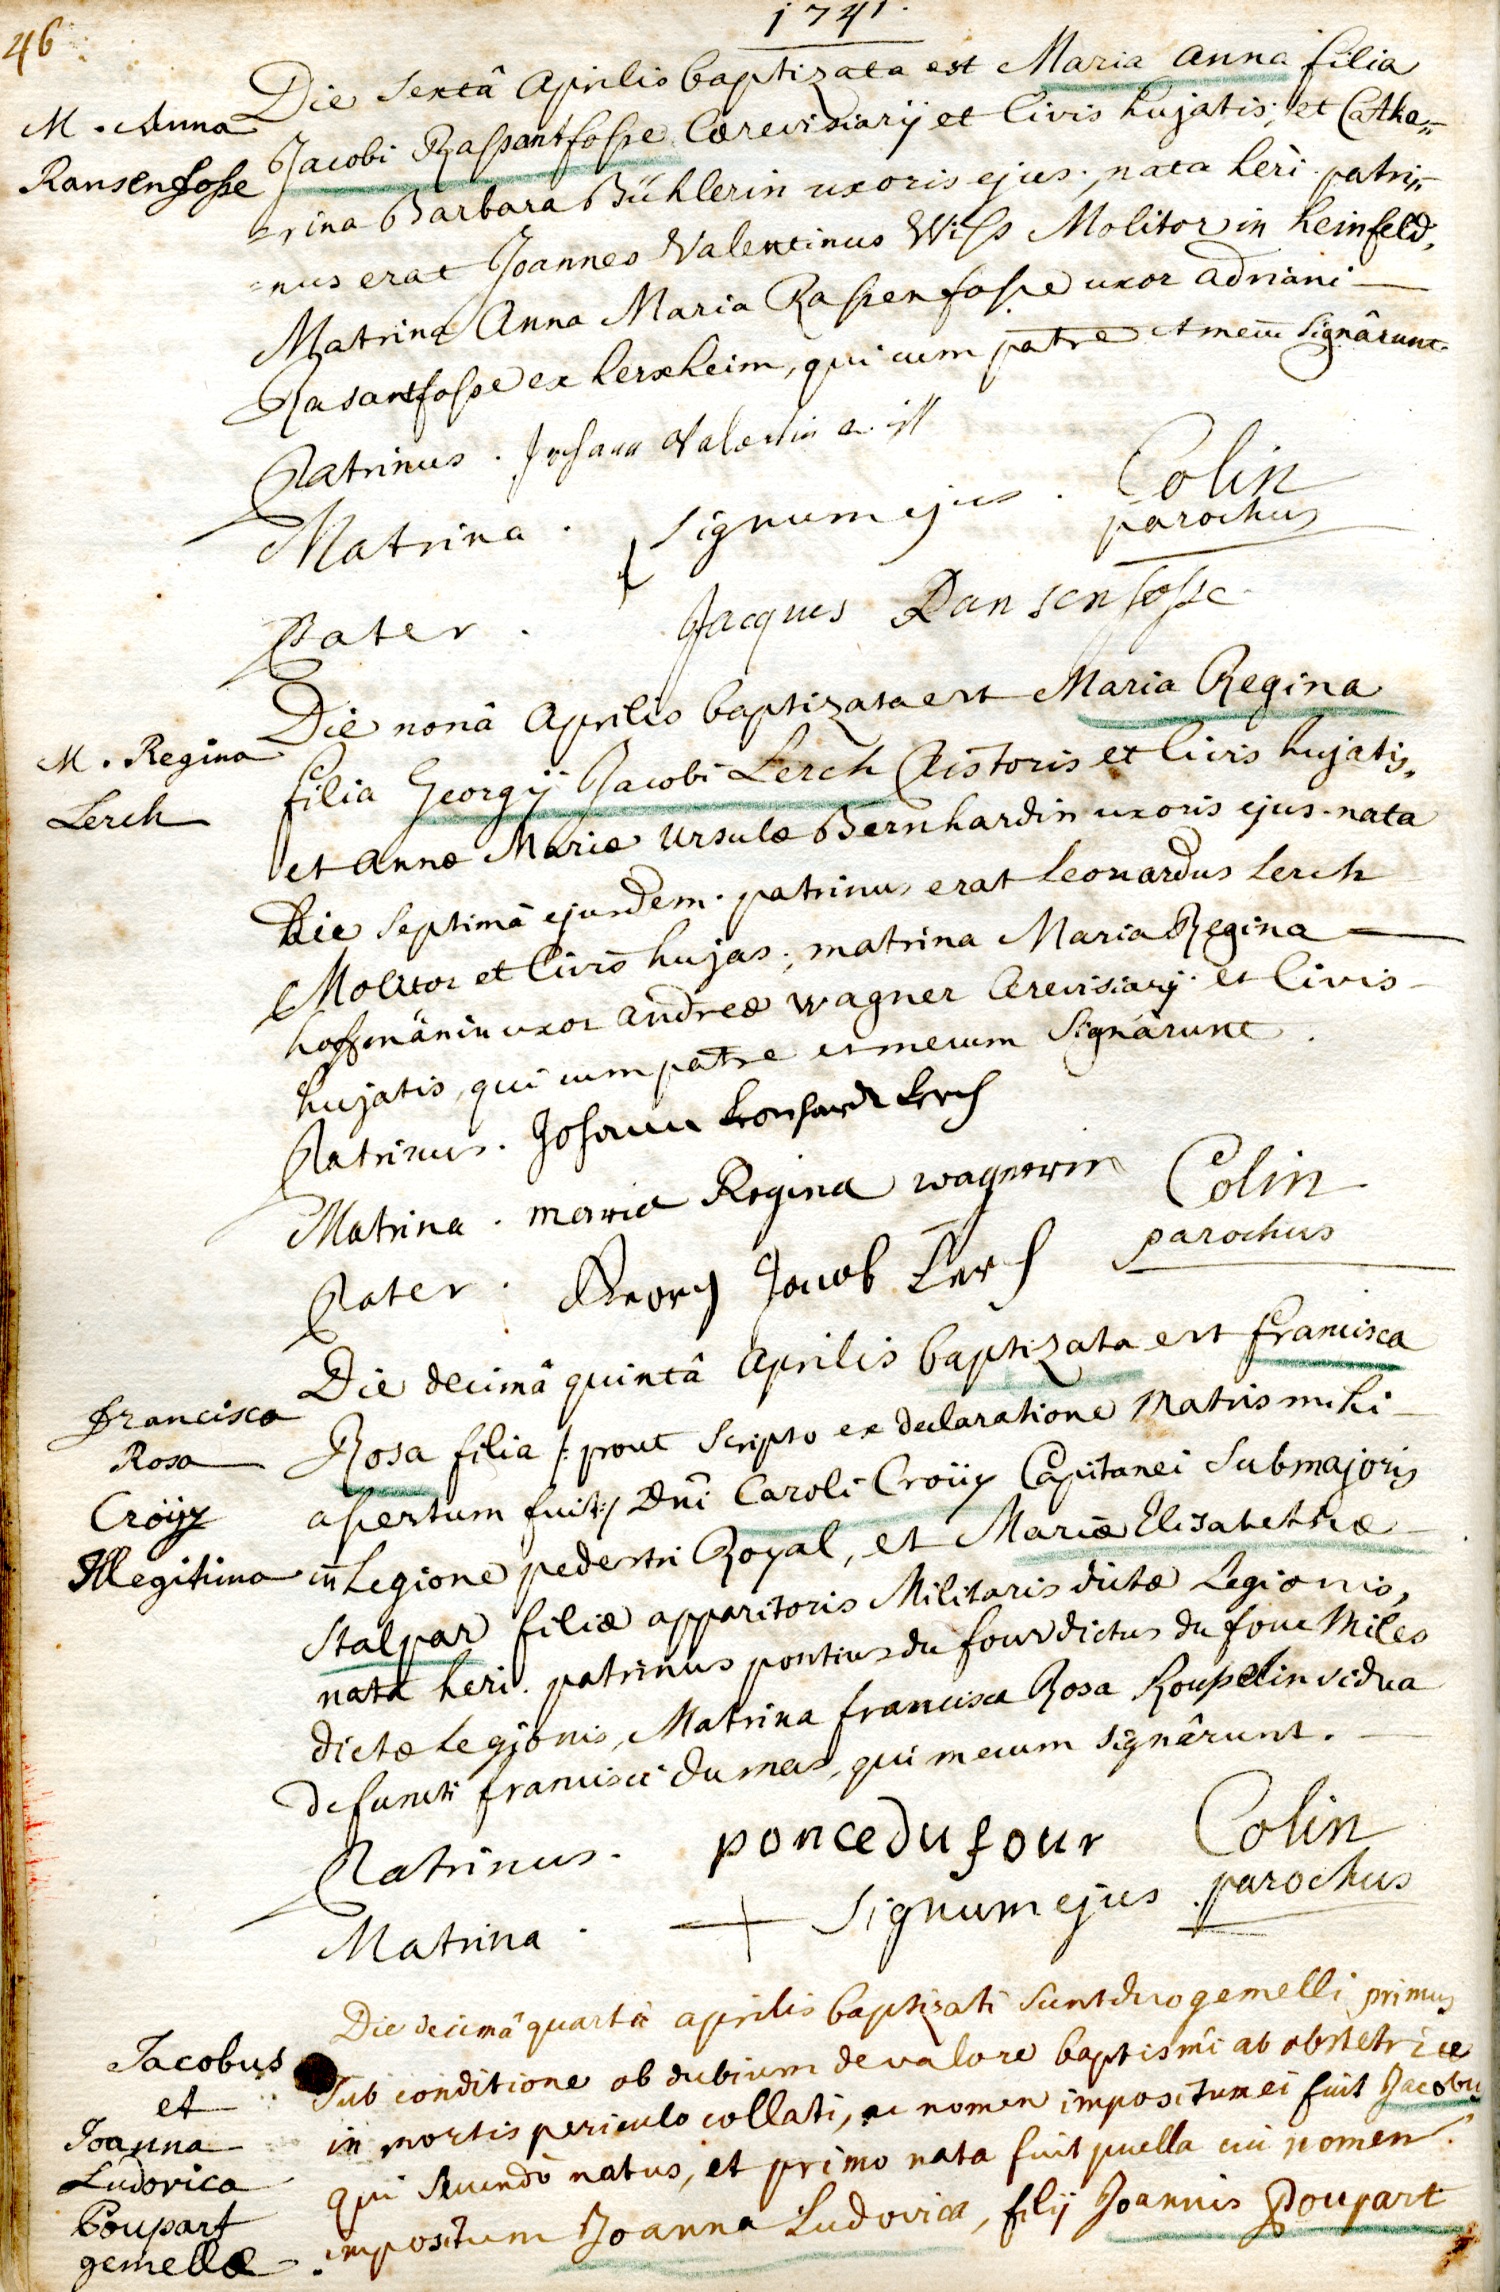 46
1741.
M. Anna
Ransenfosse
Die sextâ Aprilis baptizata est Maria Anna filia
Jacobi Rassantfosse Cærevisiarÿ et Civis hujatis, et Cathe=
=rina Barbara Bühlerin uxoris ejus, nata heri. patri=
=nus erat Joannes Valentinus Wiss Molitor in heinfeld,
Matrina Anna Maria Rassenfosse uxor Adriani
Rasantfosse ex herxheim, qui cum patre et mecū signârunt.
Patrinus. Johann Valentin
Matrina. signum ejus. Colin
parochus
Pater. Jacques Ransenfosse
M. Regina
Lerch
Die nonâ Aprilis baptizata est Maria Regina
filia Georgÿ Jacobi Lerch Pistoris et Civis hujatis,
et Annæ Mariæ Ursulæ Bernhardin uxoris ejus. nata
Die septimâ ejusdem. patrinus erat Leonardus Lerch
Molitor et Civis hujas, matrina Maria Regina
hoffmänin uxor Andreæ Wagner Cerevisiarÿ et Civis
hujatis, qui cum patre et mecum signârunt.
Patrinus. Johann Leonhardt Lerch
Matrina. maria Regina wagnerin Colin
parochus
Pater. Georg Jacob Lerch
Francisca
Rosa
Croÿy
Illegitima
Die decimâ quintâ Aprilis baptizata est Francisca
Rosa filia /: prout scripto ex declaratione Matris mihi
apertum fuit :/ Dñi Caroli Croÿy Capitanei submajoris
in Legione pedestri Royal, et Mariæ Elisabethæ
Stalpar filiæ apparitoris Militaris dictæ Legionis,
nata heri. patrinus pontius du four dictus du four Miles
dictæ Legionis, Matrina francisca Rosa Roupelin vidua
defuncti francisci dumas, qui mecum signârunt.
Patrinus. ponce du four Colin
Matrina. + signum ejus parochus
Jacobus
et
Joanna
Ludovica
Poupart
gemellæ
Die decimâ quartâ aprilis baptizati sunt duo gemelli primus
sub conditione ob dubium de valore baptismi ab obstetrice
in mortis periculo collati, ac nomen impositum ei fuit Jacobu
qui secundò natus, et primo nata fuit puella cui nomen
impositum Joanna Ludovica, filÿ Joannis Poupart